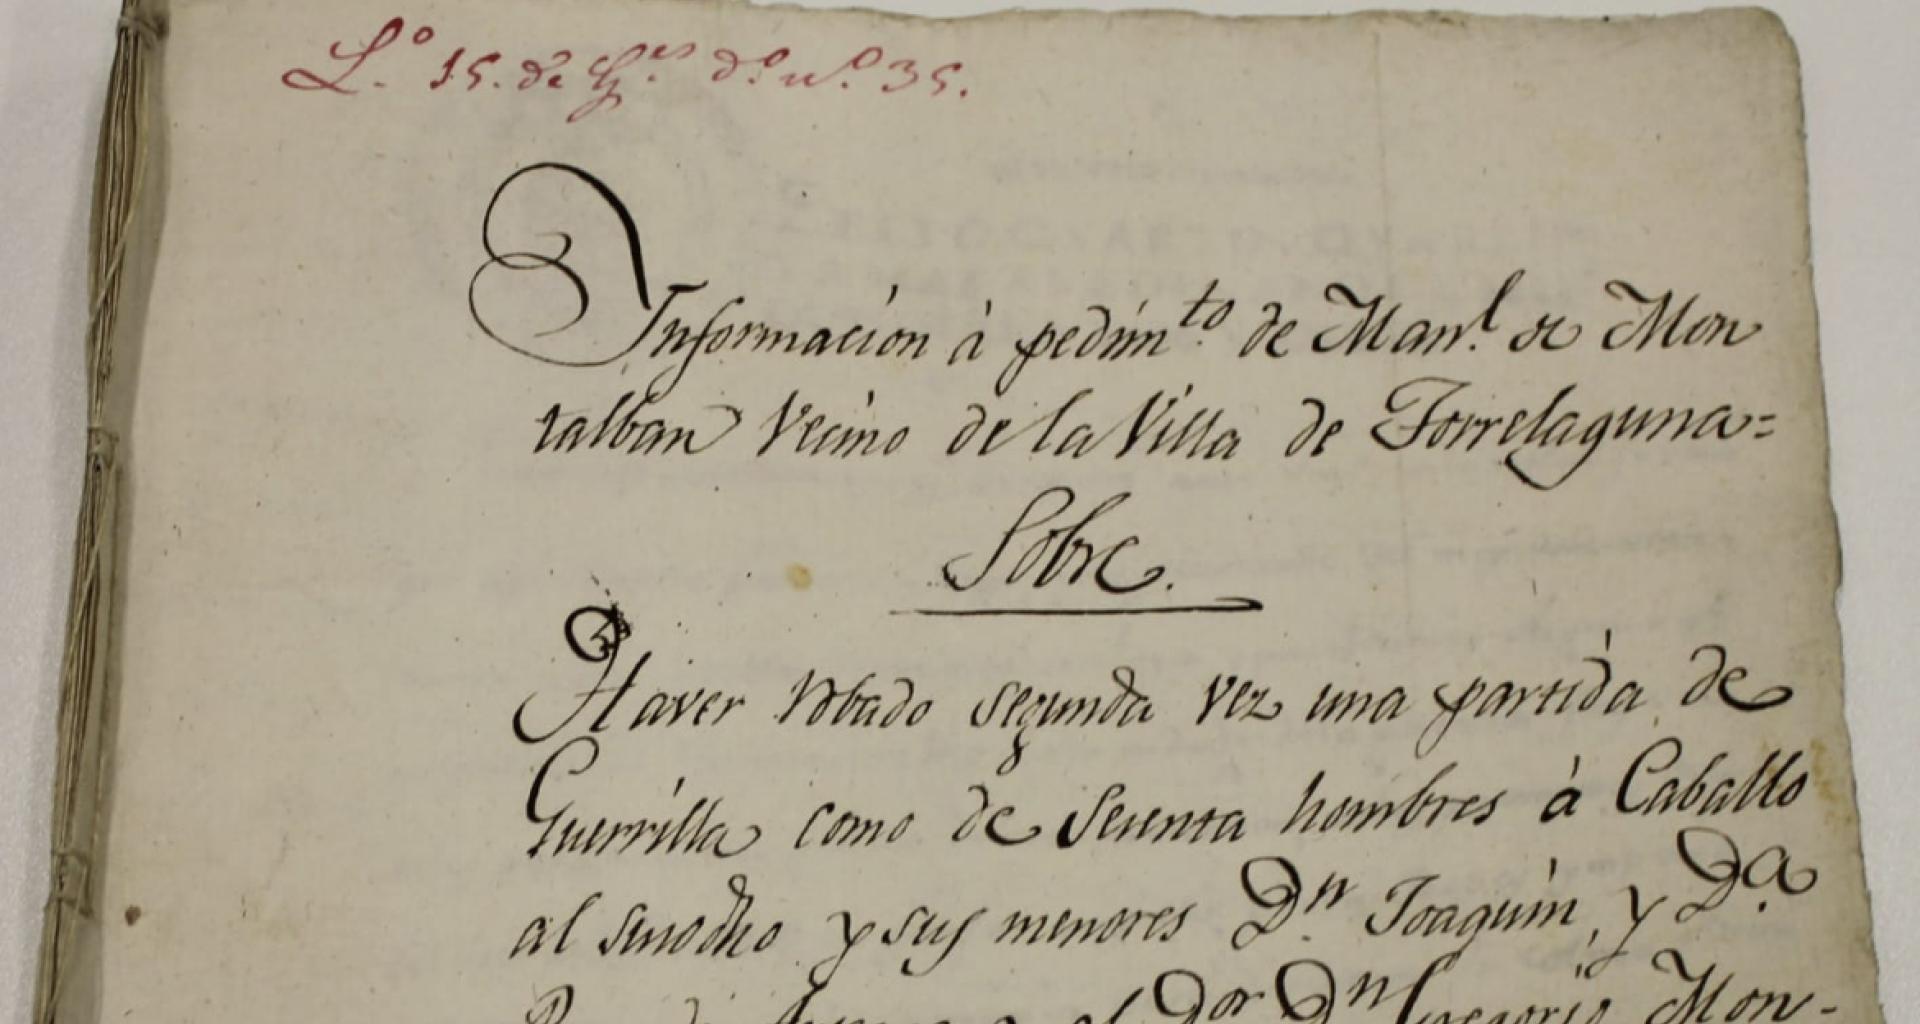 L.º 15. de dº nº. 35.
Informacion à pedimto. de Manl. de Mon
talban Vecino de la Villa de Torrelaguna=
Sobre.
Haver robado segunda vez una partida de
Guerrilla como de hombres à Caballo
al y sus menores Dn. Joaquin, y Da.
el Dor Dn Gregorio Mon-